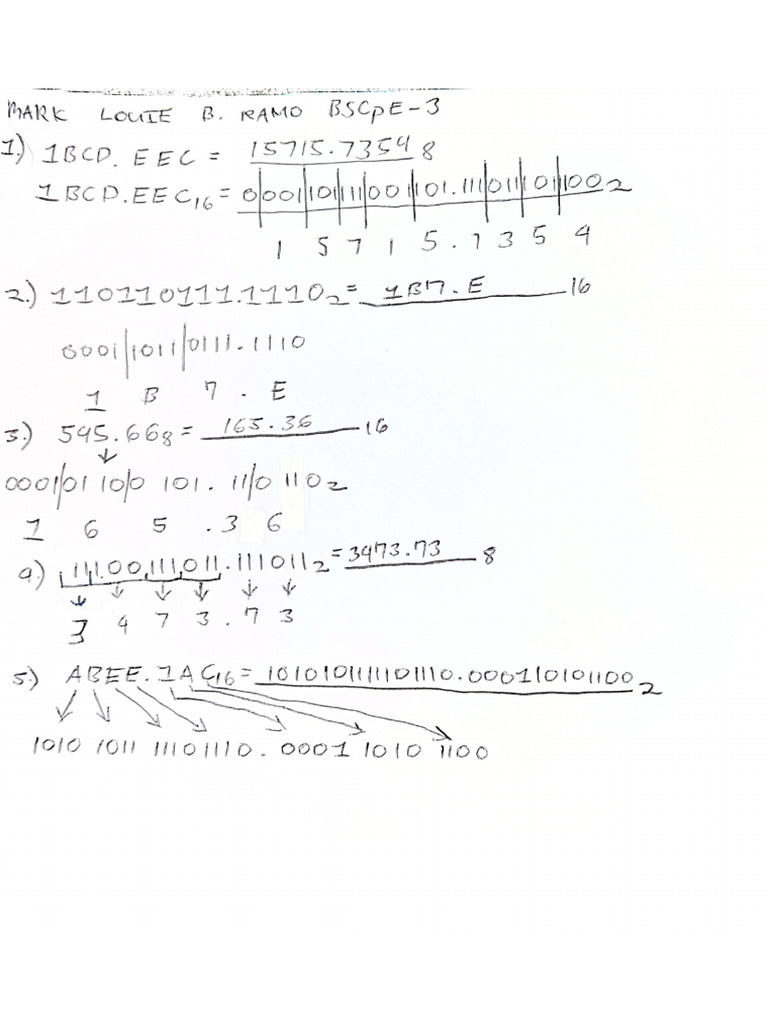 MARK LOUIE B. RAMO BSCpE-3
1.) 1BCD.EEC = 15715.7354 8
1BCD.EEC16 = 0|001|101|111|001|101.111|011|101|100 2
1 5 7 1 5 . 7 3 5 4
2.) 110110111.1110 2 = 1B7.E 16
0001|1011|0111.1110
1 B 7 . E
3.) 545.66 8 = 165.36 16
0001|01 10|0 101.11|0 110 2
1 6 5 .3 6
4.) 11100111011.111011 2 = 3473.73 8
3 4 7 3 . 7 3
5.) ABEE.1AC16 = 1010101111101110.000110101100 2
1010 1011 11101110.0001 1010 1100